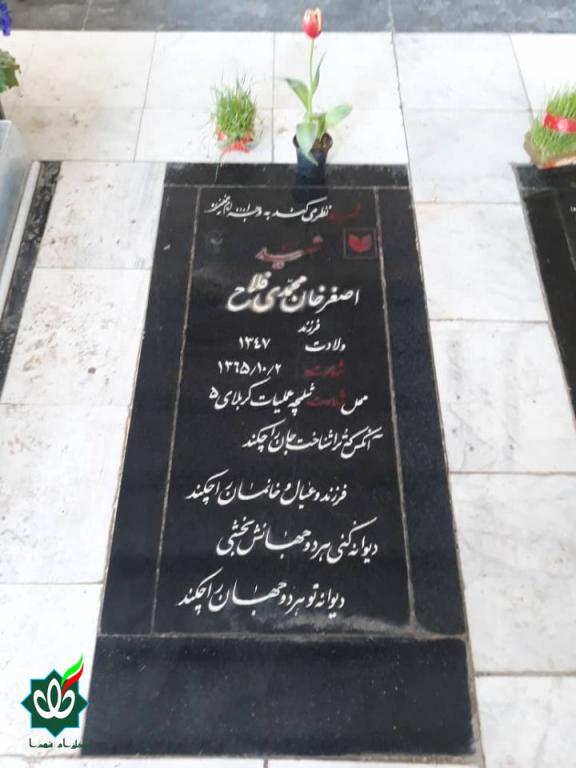 شهید نظری کند به وجه ا...
شهید
اصغرخان محمدی فلاح
فرزند
ولادت ۱۳۴۷
شهادت ۱۳۶۵/۱۰/۲
محل شهادت شلمچه عملیات کربلای ۵
آنکس که ترا شناخت جان را چکند
فرزند و عیال و خانمان را چکند
دیوانه کنی هر دو جهانش بخشی
دیوانه تو هر دو جهان را چکند